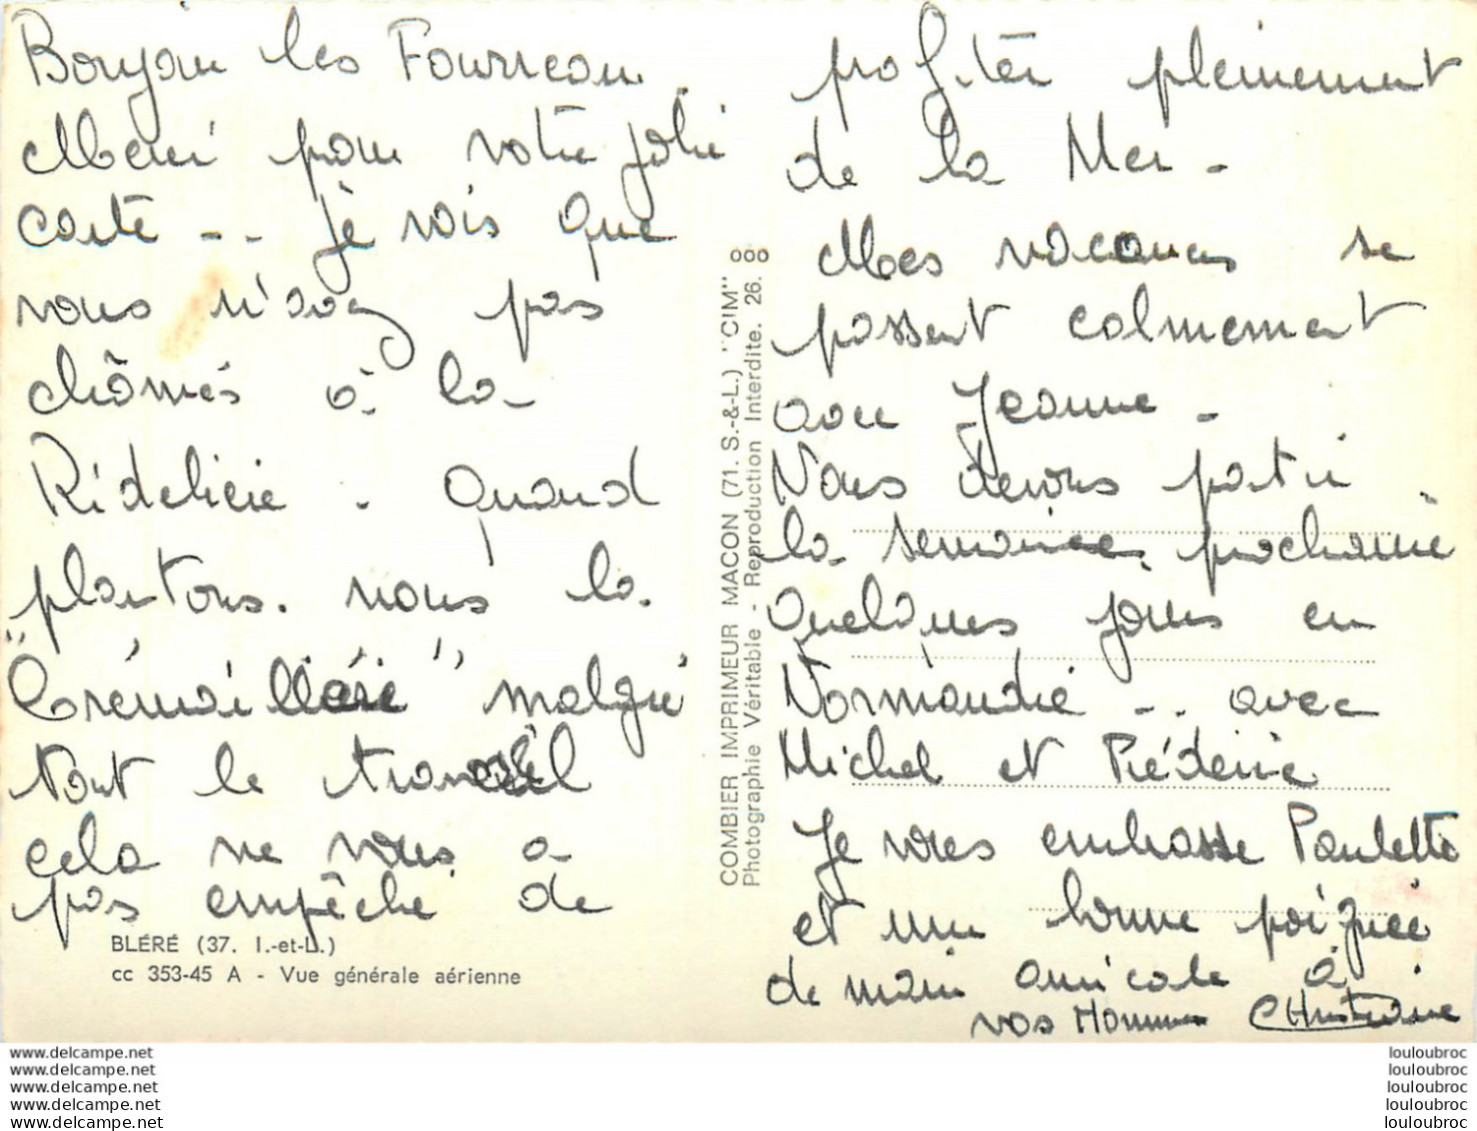 Bonjour les Fourreau.
Merci pour votre jolie
carte -- je vois que
vous n'avez pas
chômés à la
Ridelière - Quand
plantons. nous la
"Crémaillère" malgré
tout le travail
cela ne vous a
pas empêché de
BLÉRÉ (37. I.-et-L.)
cc 353-45 A - Vue générale aérienne
COMBIER IMPRIMEUR MACON (71. S.-&-L.) "CIM"
Photographie Véritable - Reproduction Interdite. 26. 000
profiter pleinement
de la Mer -
Mes vacances se
passent calmement
avec Jeanne -
Nous devons partir
la semaine prochaine
Quelques jours en
Normandie -- avec
Michel et Frédéric
Je vous embrasse Paulette
et une bonne poignée
de main amicale à
vos Hommes Christiane
www.delcampe.net
www.delcampe.net
www.delcampe.net
www.delcampe.net
www.delcampe.net
louloubroc
louloubroc
louloubroc
louloubroc
louloubroc